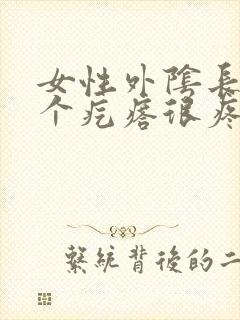 女性外陰長
个疙瘩很疼
繫統背後的二